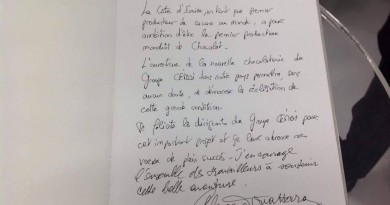 La Côte d'Ivoire, en tant que premier
producteur de cacao au monde, a pour
ambition d'être le premier producteur
mondial de Chocolat.
L'ouverture de la nouvelle chocolaterie du
Groupe CEMOI dans notre pays permettra, sans
aucun doute, de démarrer la réalisation de
cette grande ambition.
Je félicite les dirigeants du Groupe CEMOI pour
cet important projet et je leur adresse mes
voeux de plein succès. J'encourage
l'ensemble des travailleurs à soutenir
cette belle aventure.
Ouattara